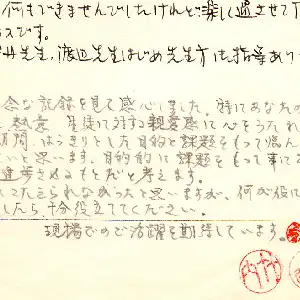 何もできませんでしたけれど楽しく過させて
スです。
先生、渡辺先生はじめ先生方、ご指導あり
念な記録を見て感心しました。特にあなたの
熱意、生徒に対する親愛感に心をうたれ
訪問、はっきりとした目的と課題をもって臨ん
いと思います。目的的に課題をもって事に
達させるもとだと考えます。
つたえられなかったと思いますが、何か役に
したら、十分役立ててください。
現場でのご活躍を期待しています。